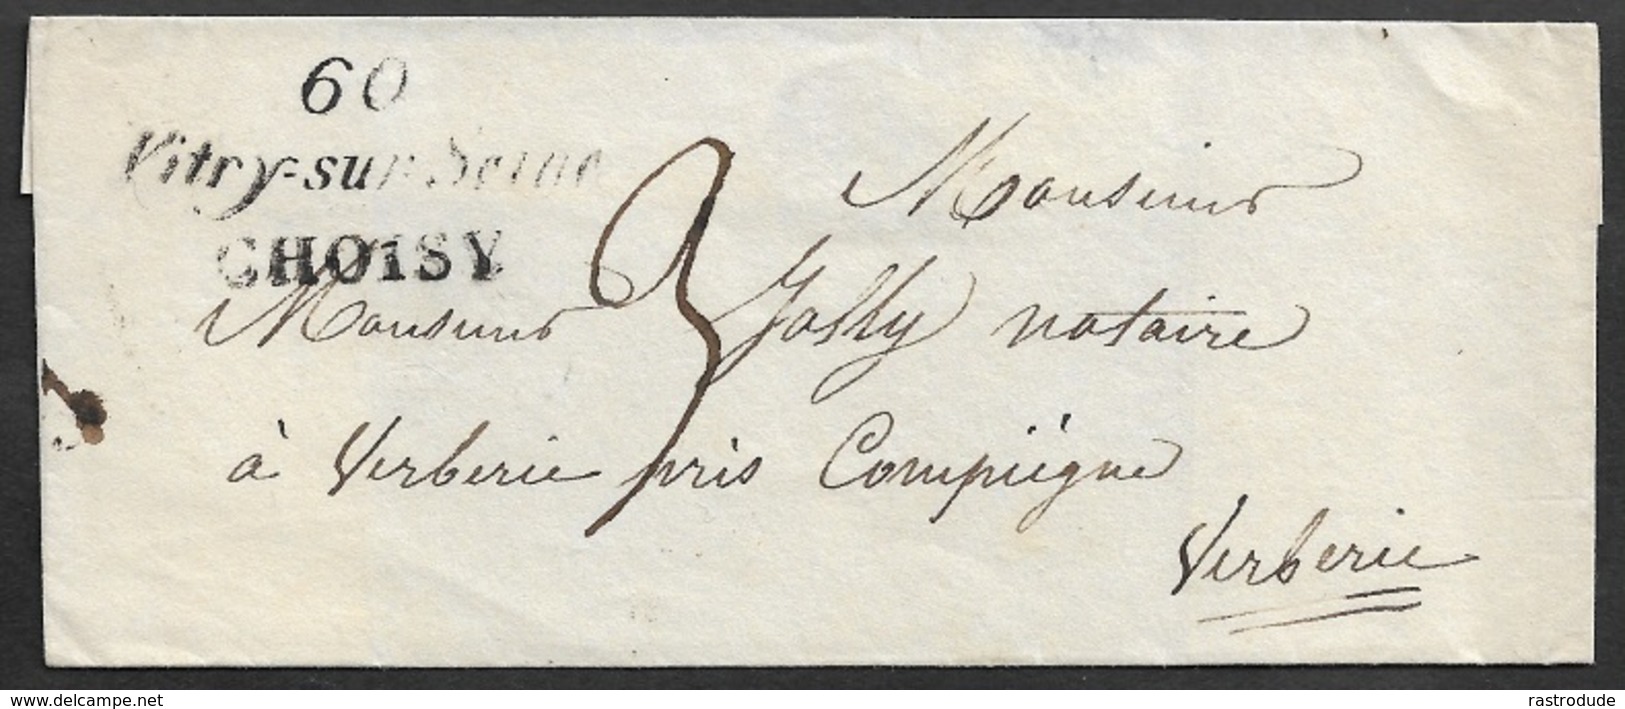 60
Vitry-sur-Seine
CHOISY
3
Monsieur
Monsieur Jolly notaire
à Verberie près Compiègne
Verberie
delcampe.net
rastrodude